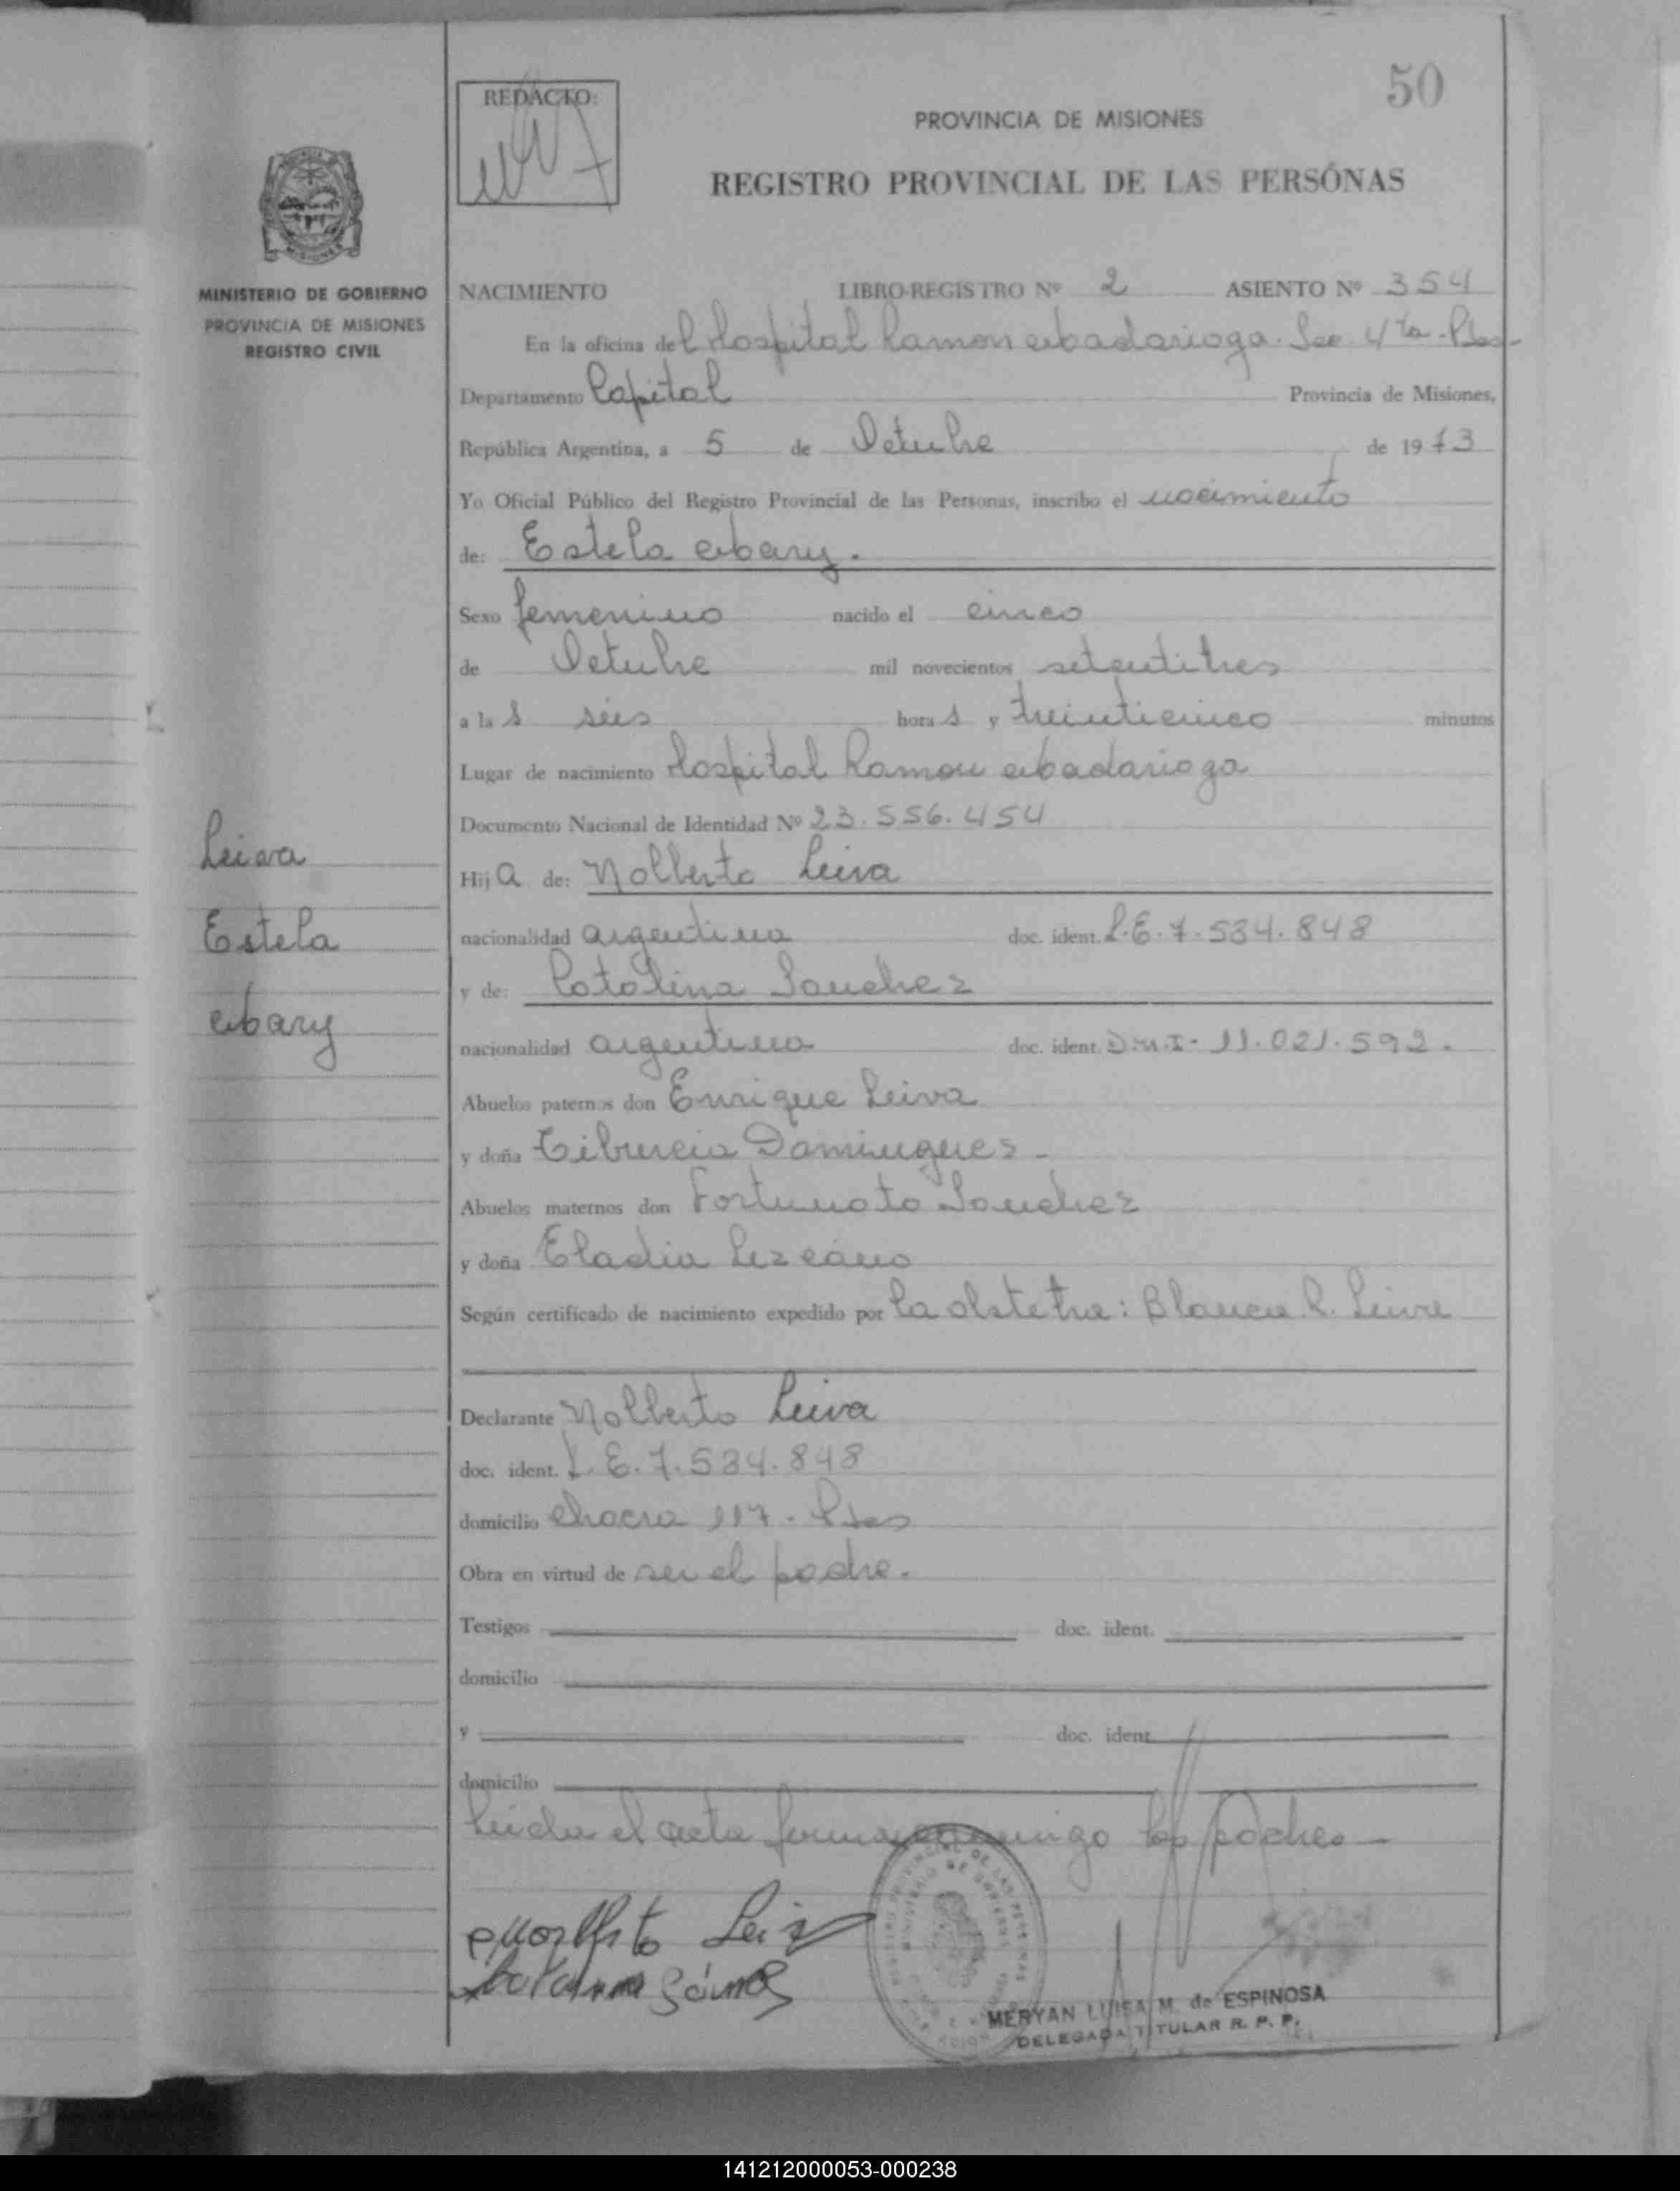 50
REDACTO:
PROVINCIA DE MISIONES
REGISTRO PROVINCIAL DE LAS PERSONAS
MINISTERIO DE GOBIERNO
PROVINCIA DE MISIONES
REGISTRO CIVIL
NACIMIENTO LIBRO-REGISTRO Nº 2 ASIENTO Nº 354
En la oficina del Hospital Ramon Madariaga. Sec. 4ta - Pdas-
Departamento Capital Provincia de Misiones,
República Argentina, a 5 de Octubre de 1973
Yo Oficial Público del Registro Provincial de las Personas, inscribo el nacimiento
de: Estela Mary.
Sexo femenino nacido el cinco
de Octubre mil novecientos setentitres
a las seis horas y treinticinco minutos
Lugar de nacimiento Hospital Ramon Madariaga
Documento Nacional de Identidad Nº 23.556.454
Hija de: Nolberto Leiva
nacionalidad argentina doc. ident. L.E. 7.534.848
y de: Catalina Sanchez
nacionalidad argentina doc. ident. D.N.I. 11.021.592.
Abuelos paternos don Enrique Leiva
y doña Tiburcia Domingues -
Abuelos maternos don Fortunato Sanchez
y doña Eladia Lezcano
Según certificado de nacimiento expedido por la obstetra: Blanca R. Leiva
Declarante Nolberto Leiva
doc. ident. L.E. 7.534.848
domicilio Chacra 117 - Pdas
Obra en virtud de ser el padre.
Testigos doc. ident.
domicilio
y doc. ident.
domicilio
Leida el acta firman conmigo los padres -
Leiva
Estela
Mary
MERYAN LUISA M. de ESPINOSA
DELEGADA TITULAR R. P. P.
141212000053-000238